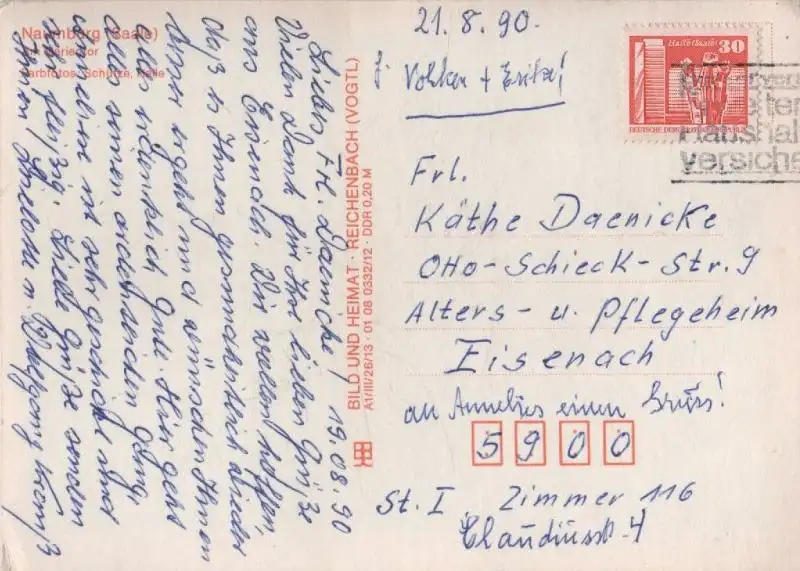 Naumburg (Saale)
Marientor
Farbfotos: Schütze, Halle
Liebes Frl. Daenicke, 19.08.90
Vielen Dank für Ihre lieben Grüße
aus Eisenach. Wir wollen hoffen,
daß es Ihnen gesundheitlich wieder
besser ergeht und wünschen Ihnen
alles erdenklich Gute. Hier geht
alles seinen
ist sehr geschickt und
sehr fleißig. Liebe Grüße senden
Ihnen Liselotte u. Wolfgang
BILD UND HEIMAT · REICHENBACH (VOGTL)
A1/III/26/13 · 01 08 0332/12 · DDR 0,20 M
21.8.90.
Volker + Erika!
Halle (Saale) 30
DEUTSCHE DEMOKRATISCHE REPUBLIK
Haushal
versiche
Frl.
Käthe Daenicke
Otto-Schieck-Str. 9
Alters- u. Pflegeheim
Eisenach
an Annelies einen Gruss!
5900
St. I Zimmer 116
Claudiusstr. 4